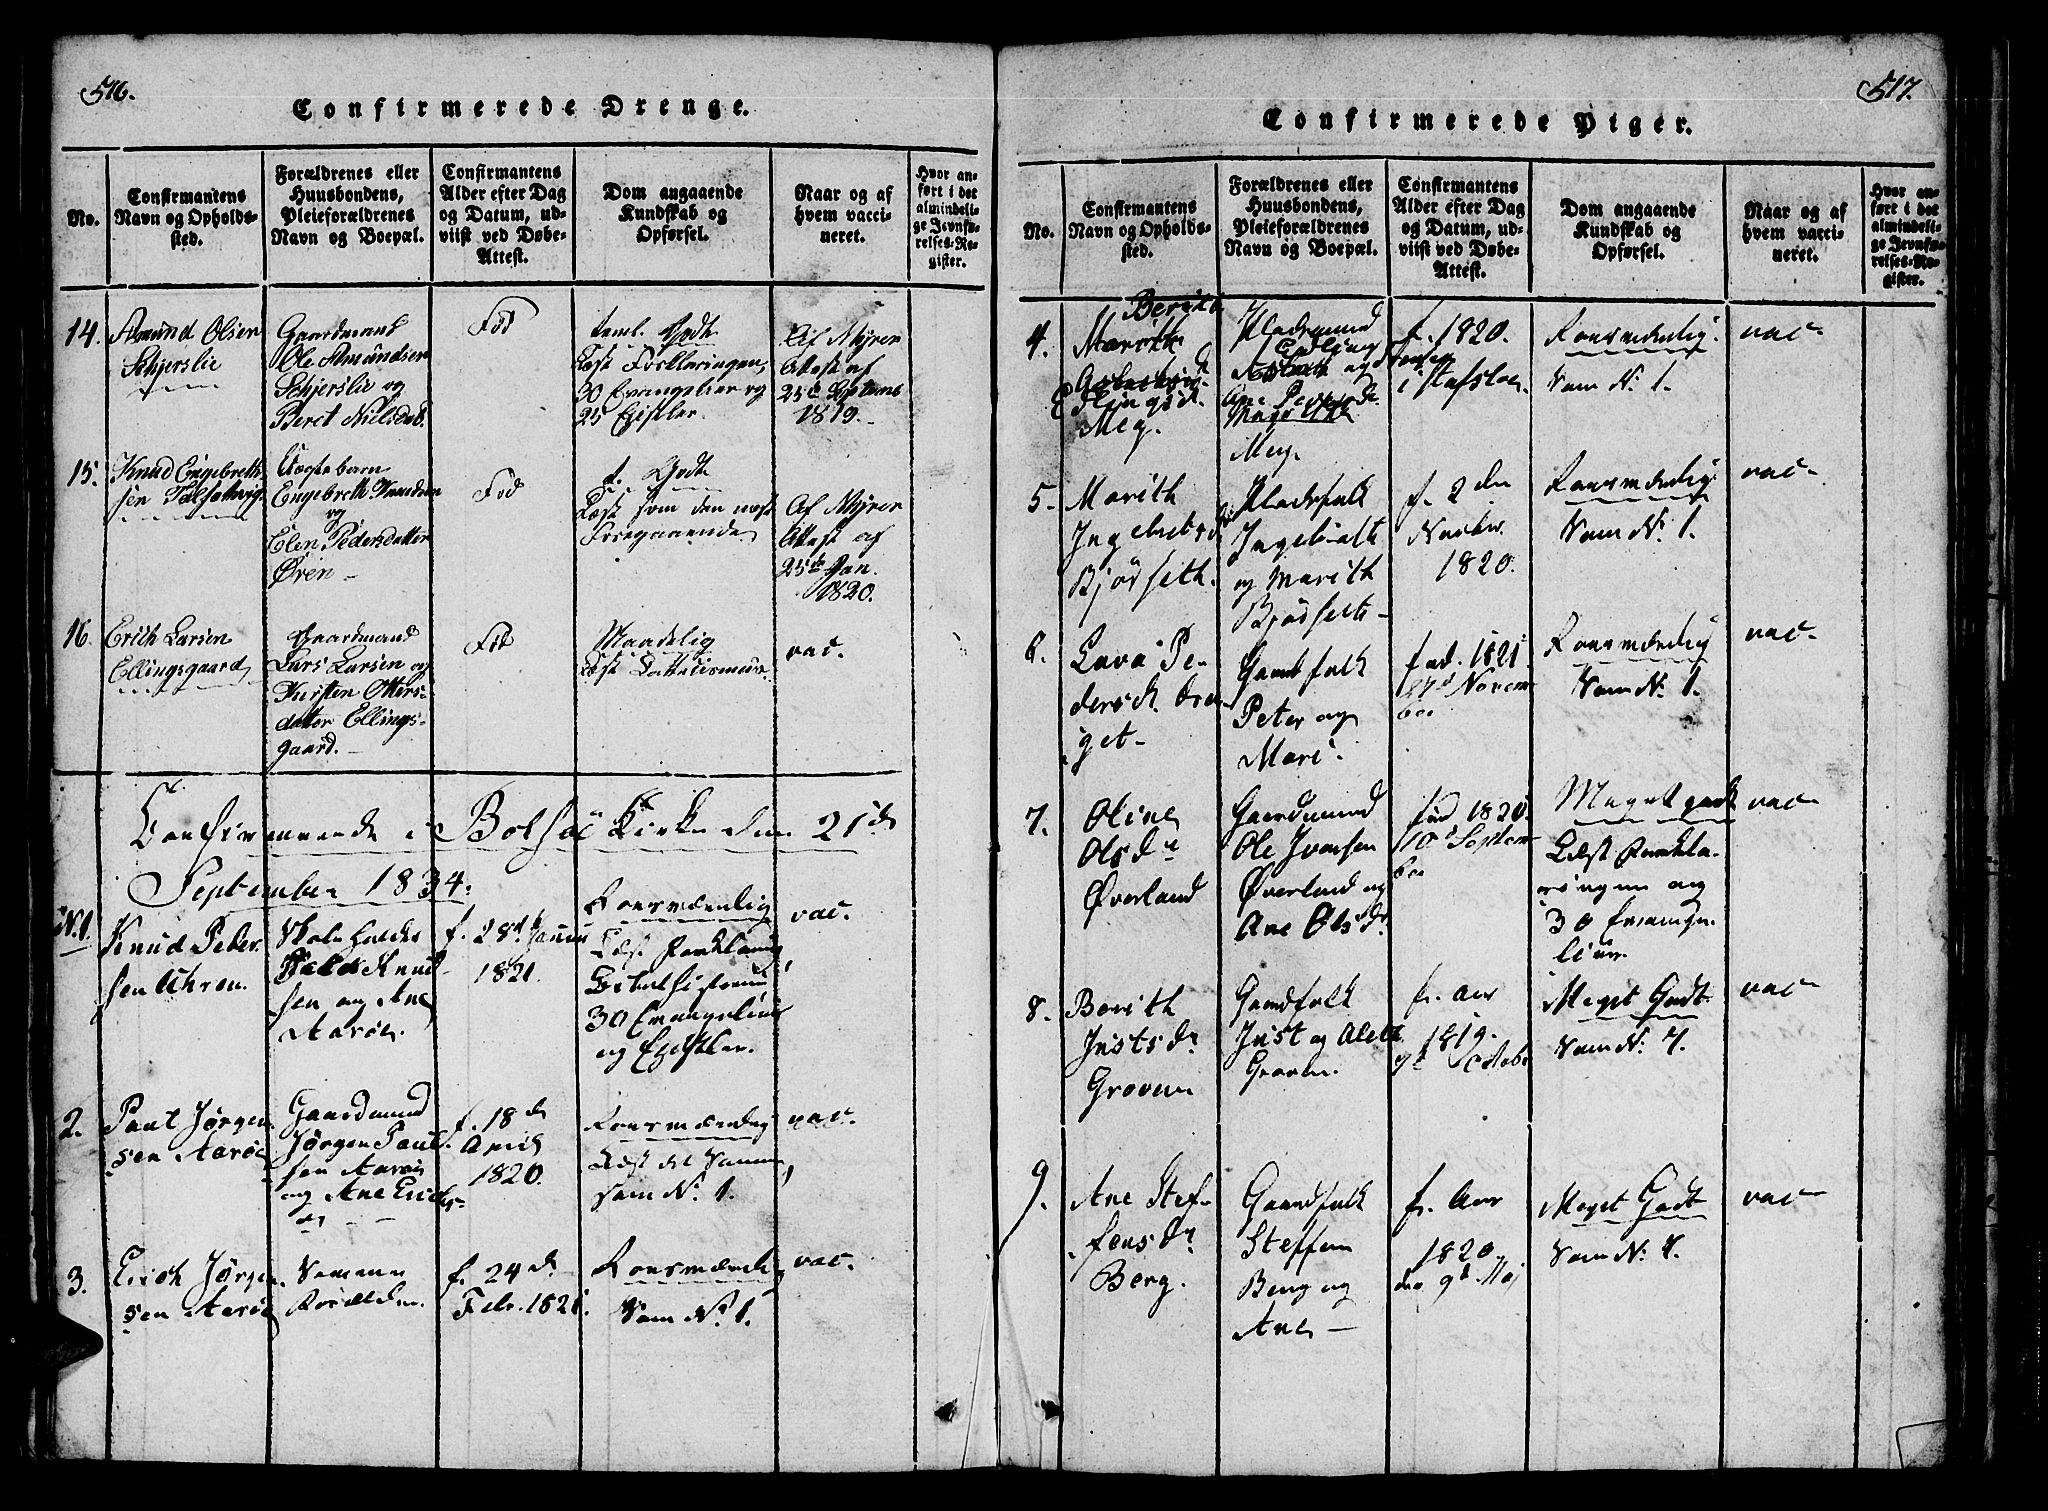 516.
Confirmerede Drenge.
No.
Confirmantens
Navn og Opholds-
sted.
Forældrenes eller
Huusbondens,
Pleieforældrenes
Navn og Boepæl.
Confirmantens
Alder efter Dag
og Datum, ud-
viist ved Døbe-
Attest.
Dom angaaende
Kundskab og
Opførsel.
Naar og af
hvem vacci-
neret.
Hvor an-
ført i det
almindeli-
ge Jevnfø-
relses-Re-
gister.
14.
Amund Olsen
Schjerslie
Gaardmand
Ole Amundsen
Schjerslie og
Beret Nilsdat.
Fød
Temel. Godt
Læst Forklaringen,
30 Evangelier og
25 Epistler.
Af Myrer
Attest af
25de Septembr
1819.
15.
Knud Engebreth-
sen
Uægte barn
Engebreth Knudsen
og
Elen Pedersdatter
Øren
Fød
t. Godt
Læst som den næst
Foregaaende
Af Myrer
Attest af
25de Jan.
1820.
16.
Erich Larsen
Ellingsgaard
Gaardmand
Lars Larsen og
Kirsten Otters-
datter Ellings-
gaard.
Fød
Maadelig
Læst Cattechismus.
vac.
Confirmerede i Bolsøe Kirke den 21de
September 1834.
N.1.
Knud Peder-
sen Uhren.
Skoleholder
Knud-
sen og Ane
Aarøe.
f. 28d Januar
1821.
Forsvarlig
Læst Forklaring,
Bibelhistorien
30 Evangelier
og Epistler.
vac.
2.
Paul Jørgen-
sen Aarøe
Gaardmand
Jørgen Paul-
sen Aarøe
og Ane Erichs-
dr
f. 18de
April
1820.
Forsvarlig
Læst det Samme
som N. 1.
vac.
3.
Erich Jørgen-
sen Aarøe
Samme
Forældre.
f. 24de
Febr. 1821.
Forsvarlig
Som N. 1.
vac.
517.
Confirmerede Piger.
No.
Confirmantens
Navn og Opholds-
sted.
Forældrenes eller
Huusbondens,
Pleieforældrenes
Navn og Boepæl.
Confirmantens
Alder efter Dag
og Datum, ud-
viist ved Døbe-
Attest.
Dom angaaende
Kundskab og
Opførsel.
Naar og af
hvem vacci-
neret.
Hvor an-
ført i det
almindeli-
ge Jevnfø-
relses-Re-
gister.
4.
Berith
Marith
Ellingsd.
Meg.
Pladsmand
Elling
og
Ane
Meg.
f. 1820.
i
Forsvarlig
Som N. 1.
vac
5.
Marith
Ingebretsdr
Bjørseth.
Pladsfolk
Ingebrith
og Marith
Bjørseth
f. 2den
Novbr.
1820.
Forsvarlig
Som N. 1.
vac
6.
Lava Pe-
dersd.
get
Gaardfolk
Peter og
Mari.
fød. 1821
27d Novem-
ber
Forsvarlig
Som N. 1.
vac
7.
Oline
Olsdr
Øverland
Gaardmand
Ole Iversen
Øverland og
Ane Olsdr
fød 1820.
10d Septem-
ber
Meget godt
Læst Forkla-
ringen og
30 Evange-
lier.
vac
8.
Berith
Justsdr
Groven
Gaardfolk
Just og Aleth
Groven.
f. Aar
1819.
9d October
Meget Godt
Som N. 7.
vac
9.
Ane Stef-
fensdr
Berg.
Gaardfolk
Steffen
Berg og
Ane
f. Aar
1820
den 9d Maj
Meget Godt
Som N. 7.
vac